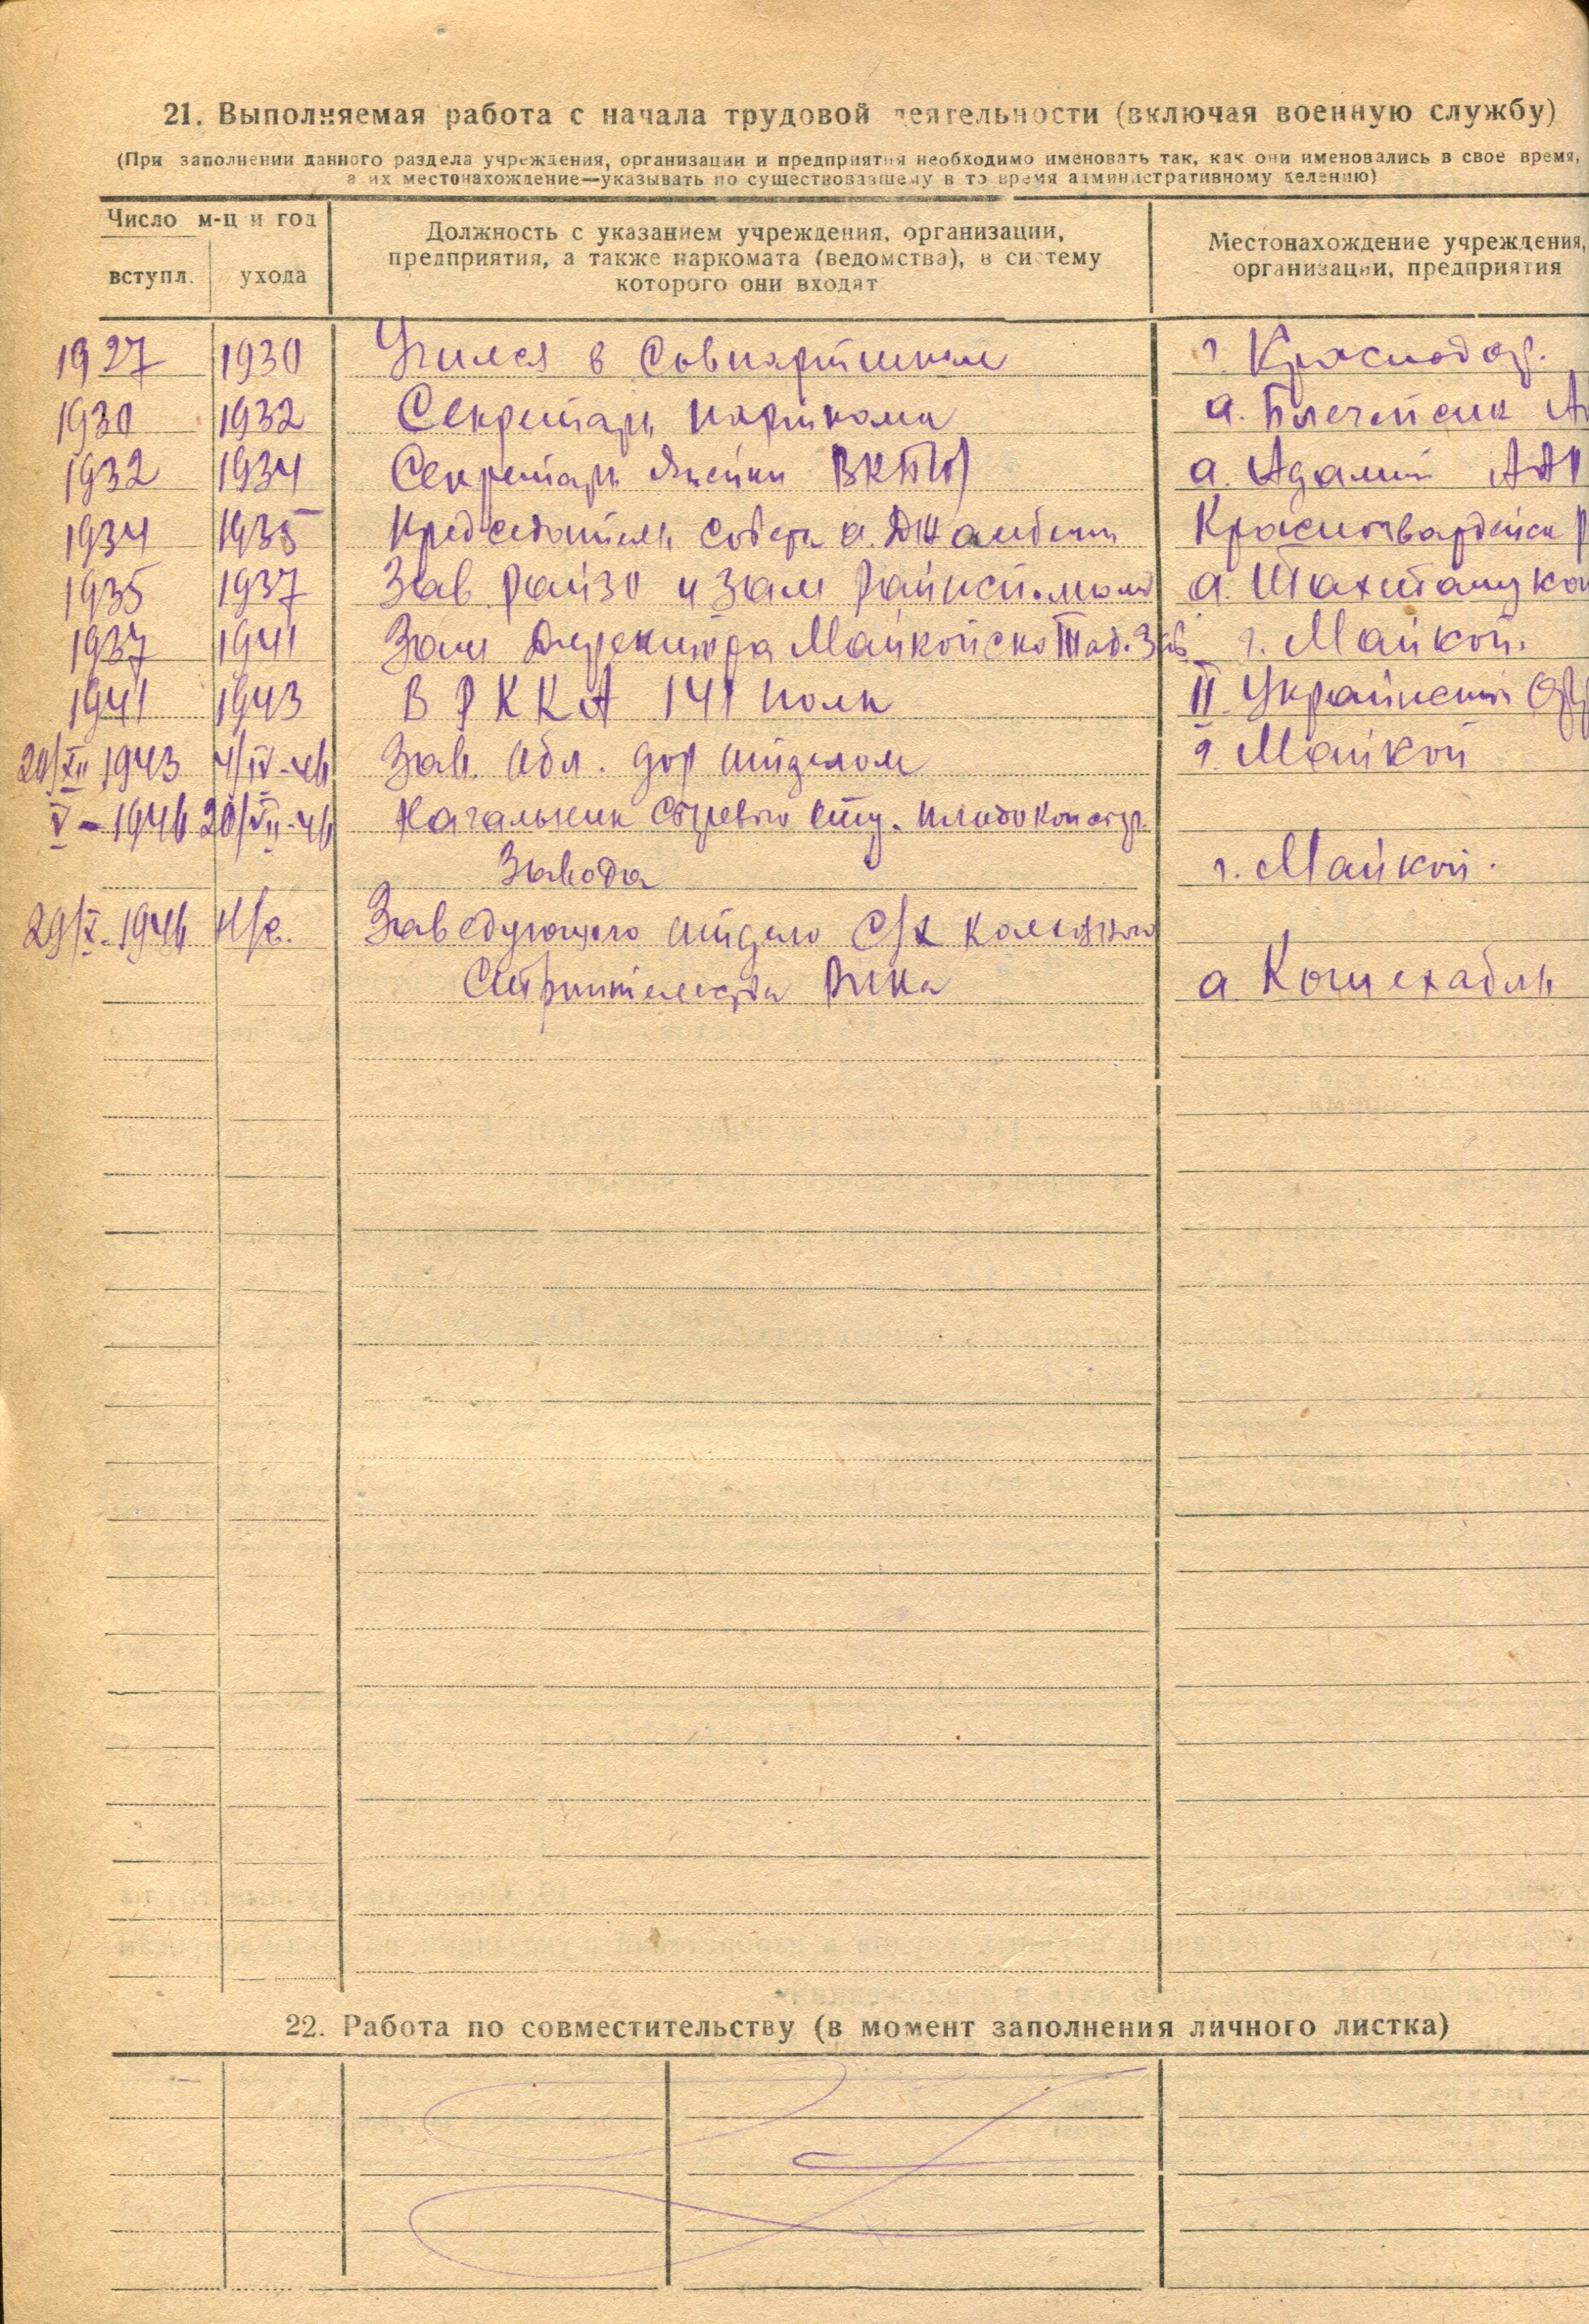 21. Выполняемая работа с начала трудовой деятельности (включая военную службу)
(При заполнении данного раздела учреждения, организации и предприятия необходимо именовать так, как они именовались в свое время,
а их местонахождение—указывать по существовавшему в то время административному делению)
Число м-ц и год
вступл.
ухода
Должность с указанием учреждения, организации,
предприятия, а также наркомата (ведомства), в систему
которого они входят
Местонахождение учреждения,
организации, предприятия
1927 1930 Учился в Совпартшколе г. Краснодар.
1930 1932 Секретарь парткома а. Блечепсин
1932 1934 Секретарь ячейки ВКП(б) а. Адамий
1934 1935 Председатель совета а. Джамбечи Красногвардейск
1935 1937 Зав райзо и зам райисп.
1937 1941 Зам Директора Майкопско г. Майкоп.
1941 1943 В РККА 141 полк II Украинский
20/XII 1943 4/IV-46 Зав. Обл. дор отделом г. Майкоп
V-1946 20/VII-46 Начальник Сырьевого отд. плодоконсерв.
Завода г. Майкоп.
29/X-1946 Н/в. Заведующего отдело С/х колхозного
Строительства Рика а Кошехабль
22. Работа по совместительству (в момент заполнения личного листка)